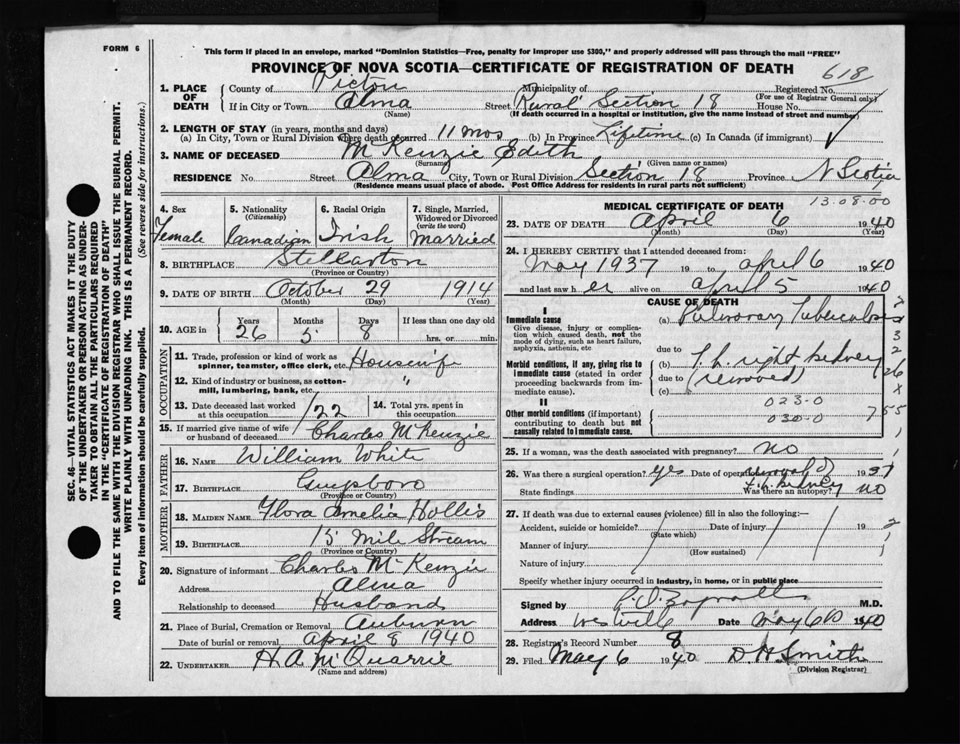 FORM 6
This form if placed in an envelope, marked "Dominion Statistics—Free, penalty for improper use $300," and properly addressed will pass through the mail "FREE"
PROVINCE OF NOVA SCOTIA—CERTIFICATE OF REGISTRATION OF DEATH
618
SEC. 46—VITAL STATISTICS ACT MAKES IT THE DUTY
OF THE UNDERTAKER OR PERSON ACTING AS UNDER-
TAKER TO OBTAIN ALL THE PARTICULARS REQUIRED
IN THE "CERTIFICATE OF REGISTRATION OF DEATH"
AND TO FILE THE SAME WITH THE DIVISION REGISTRAR WHO SHALL ISSUE THE BURIAL PERMIT.
WRITE PLAINLY WITH UNFADING INK. THIS IS A PERMANENT RECORD.
Every item of information should be carefully supplied. (See reverse side for instructions.)
1. PLACE OF DEATH
County of Pictou Municipality of Registered No.
(For use of Registrar General only)
If in City or Town Alma Street Rural Section 18 House No.
(Name) (If death occurred in a hospital or institution, give the name instead of street and number)
2. LENGTH OF STAY (in years, months and days)
(a) In City, Town or Rural Division where death occurred 11 mos (b) In Province Lifetime (c) In Canada (if immigrant)
3. NAME OF DECEASED McKenzie Edith
(Surname) (Given name or names)
RESIDENCE No. Street Alma City, Town or Rural Division Section 18 Province N Scotia
(Residence means usual place of abode. Post Office Address for residents in rural parts not sufficient)
4. Sex Female
5. Nationality (Citizenship) Canadian
6. Racial Origin Irish
7. Single, Married, Widowed or Divorced (write the word) Married
8. BIRTHPLACE Stellarton
(Province or Country)
9. DATE OF BIRTH October 29 1914
(Month) (Day) (Year)
10. AGE in Years 26 Months 5 Days 8 If less than one day old hrs. or min.
OCCUPATION
11. Trade, profession or kind of work as spinner, teamster, office clerk, etc. Housewife
12. Kind of industry or business, as cotton-mill, lumbering, bank, etc. "
13. Date deceased last worked at this occupation /22
14. Total yrs. spent in this occupation
15. If married give name of wife or husband of deceased Charles McKenzie
FATHER
16. NAME William White
17. BIRTHPLACE Guysboro
(Province or Country)
MOTHER
18. MAIDEN NAME Flora Amelia Hollis
19. BIRTHPLACE 15 Mile Stream
(Province or Country)
20. Signature of informant Charles McKenzie
Address Alma
Relationship to deceased Husband
21. Place of Burial, Cremation or Removal Auburn
Date of burial or removal April 8 1940
22. UNDERTAKER H. A. McQuarrie
(Name and address)
MEDICAL CERTIFICATE OF DEATH 13-08-00
23. DATE OF DEATH April 6 1940
(Month) (Day) (Year)
24. I HEREBY CERTIFY that I attended deceased from:
May 1937 19 to April 6 1940
and last saw her alive on April 5 1940
CAUSE OF DEATH
I
Immediate cause
Give disease, injury or complication which caused death, not the mode of dying, such as heart failure, asphyxia, asthenia, etc
(a) Pulmonary Tuberculosis
due to
Morbid conditions, if any, giving rise to immediate cause (stated in order proceeding backwards from immediate cause).
(b) T.b. right kidney
due to (removed)
(c)
II
Other morbid conditions (if important) contributing to death but not causally related to immediate cause.
023-0
030-0
755
25. If a woman, was the death associated with pregnancy? no
26. Was there a surgical operation? yes Date of operation 1937
State findings T.b. kidney Was there an autopsy? no
27. If death was due to external causes (violence) fill in also the following:—
Accident, suicide or homicide? Date of injury 19
(State which)
Manner of injury
(How sustained)
Nature of injury
Specify whether injury occurred in industry, in home, or in public place
Signed by M.D.
Address Westville Date May 6 1940
28. Registrar's Record Number 8
29. Filed May 6 1940 D. H. Smith
(Division Registrar)